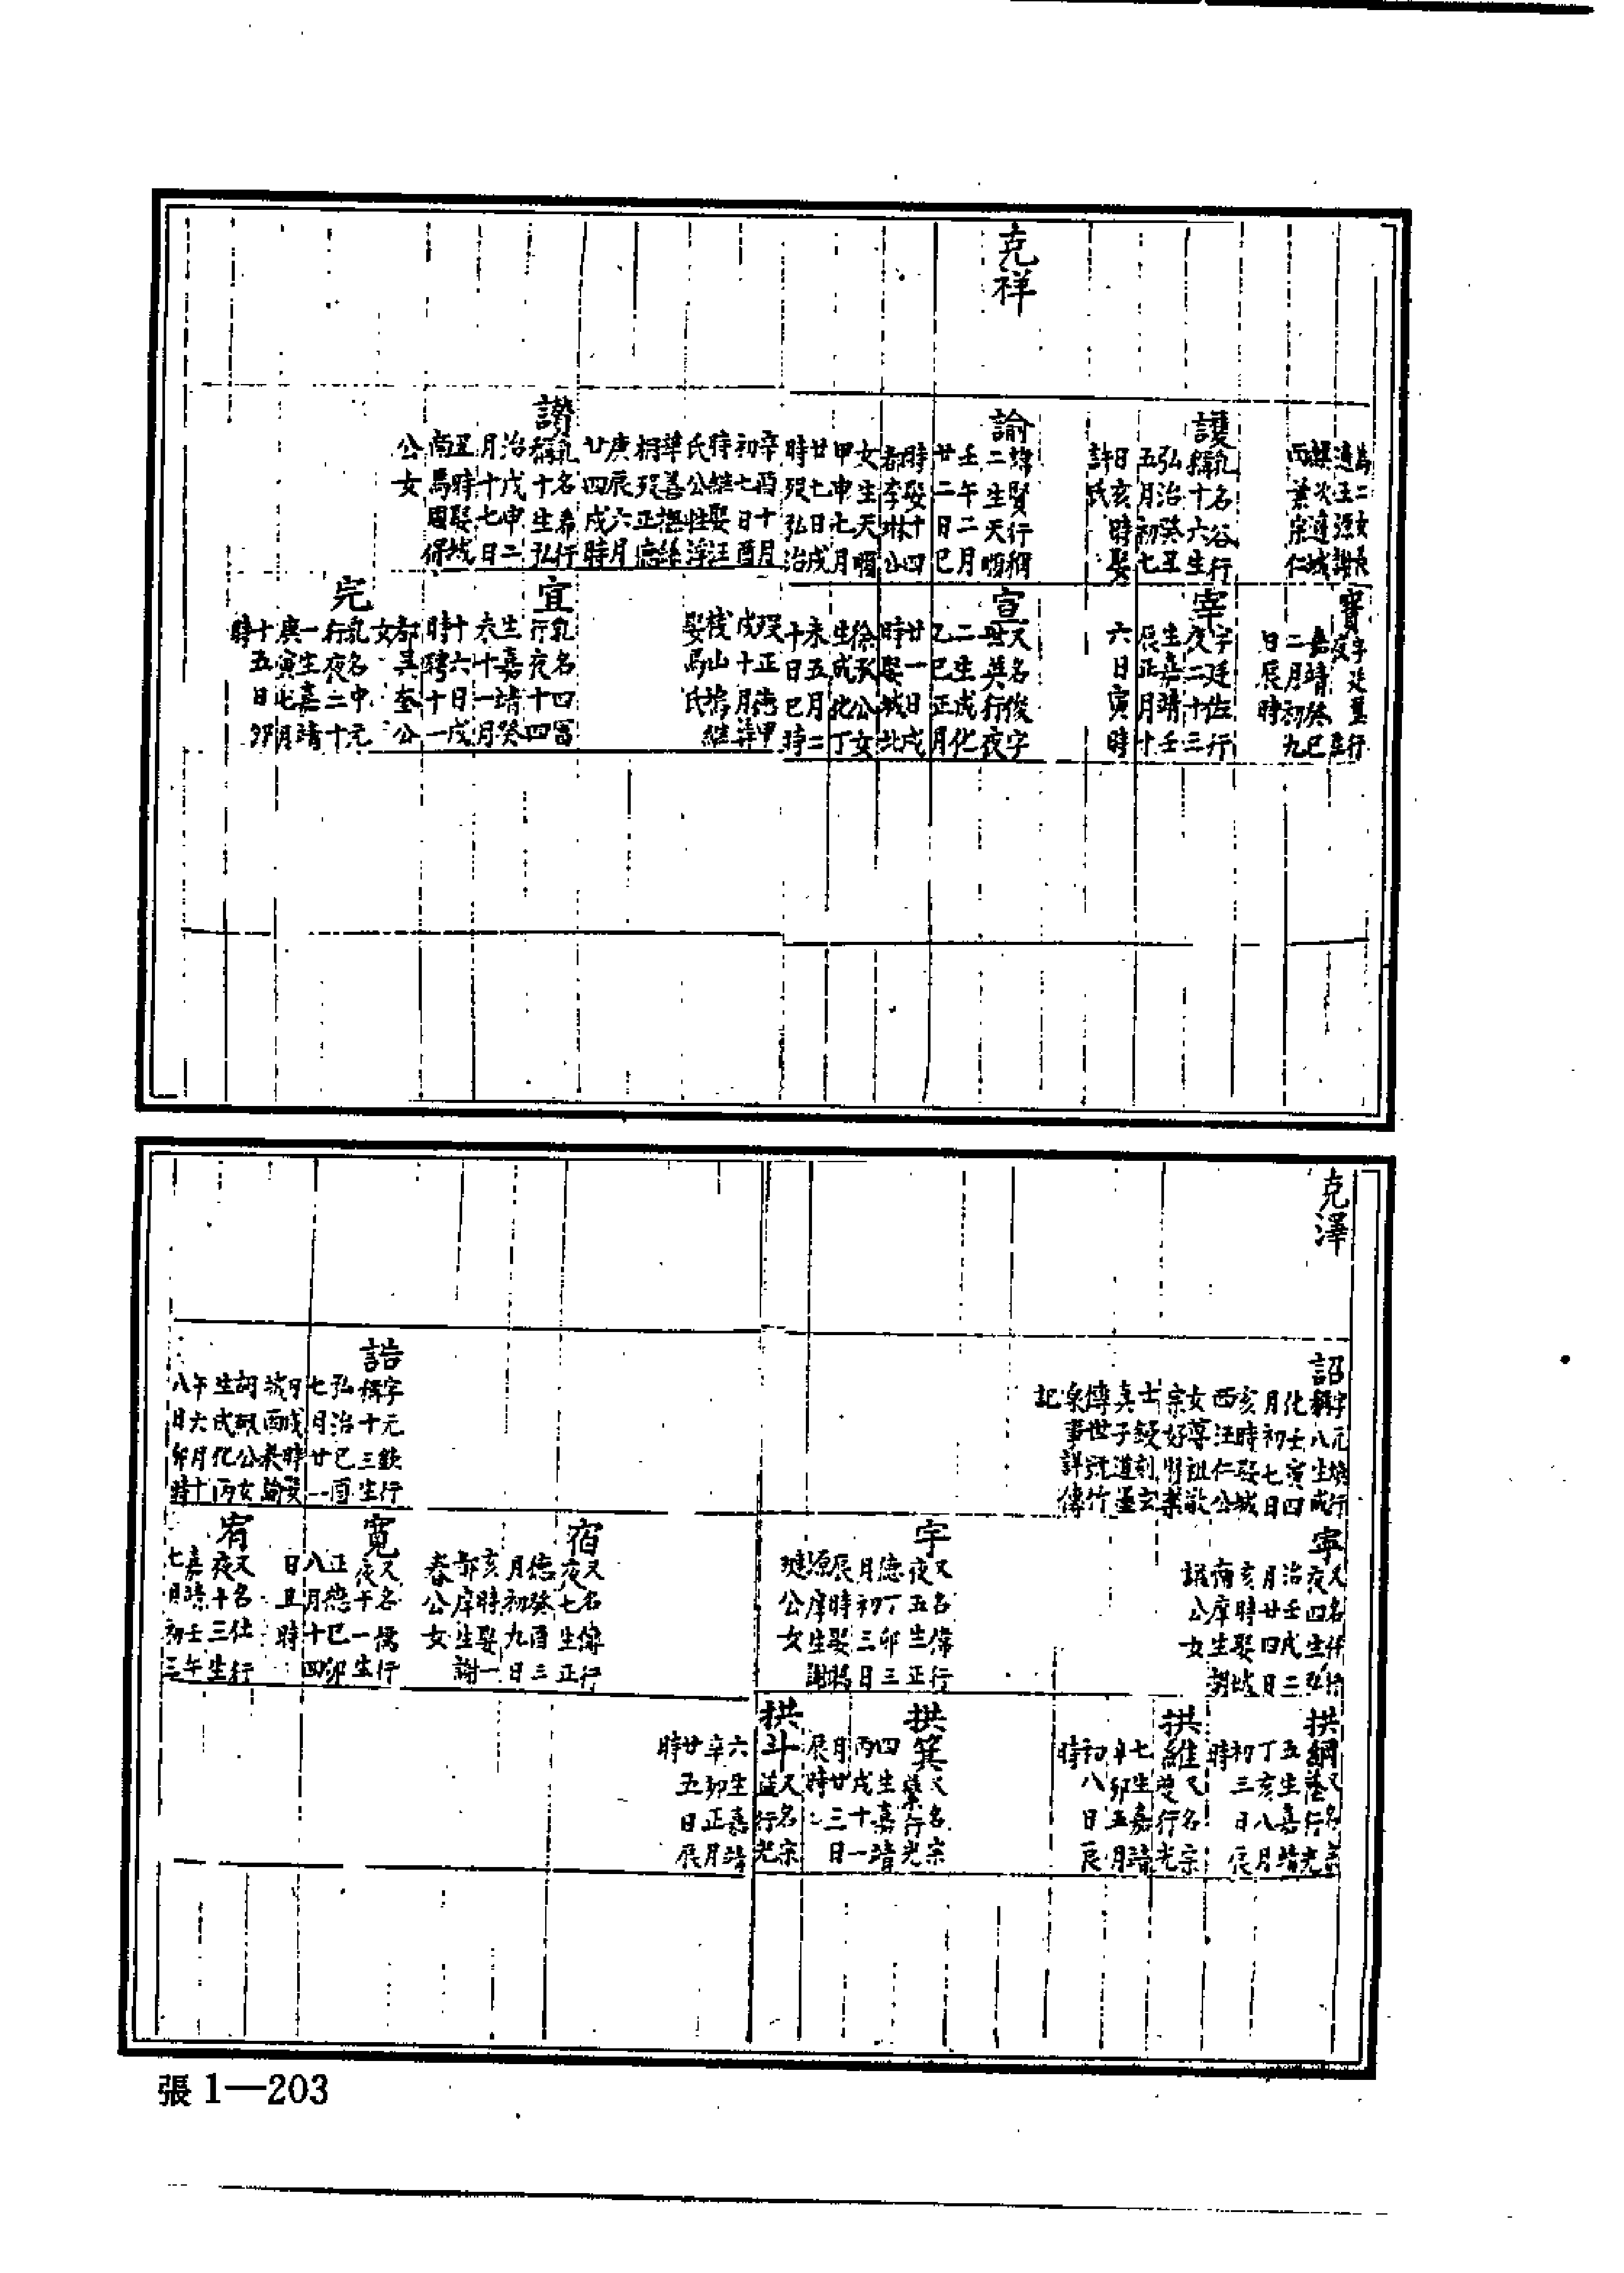 克祥
謢
乳名谷行
稱十六生
弘治癸丑
五月初七
日亥時娶
許氏
諭
緯賢行稱
二生天順
壬午二月
廿二日巳
時娶十四
都李琳公
女生天順
甲申七月
廿七日戌
時歿弘治
辛酉十月
初七日酉
時繼娶汪
氏公性淳
庚辰六月
廿四戌時
讚
乳名希行
稱十生弘
治戊申二
月十七日
丑時娶城
南馬國保
公女
二月初九
日辰時
宰
字廷佐行
夜二十三
生嘉靖壬
辰正月十
六日寅時
宣
又名俊字
世英行夜
二生成化
乙巳正月
廿一日戌
時娶城北
徐永公女
生成化丁
未五月二
十日巳時
歿正德甲
戌十月葬
娶馬氏
宜
乳名四富
行夜十四
生嘉靖癸
未十一月
十六日戌
時聘十一
都吳奎公
女
完
乳名申元
行夜二十
一生嘉靖
庚寅七月
十五日卯
時
克澤
詔
字元煥行
稱八生成
化壬寅四
月初七日
亥時娶城
西汪仁公
女尊祖敬
宗好明業
士鋟刻玄
真子道墨
傳世號竹
泉事詳傳
記
誥
字元欽行
稱十三生
弘治己酉
七月廿一
日戌時娶
胡公女
生成化丙
午六月十
八日卯時
寧
夜四生弘
治壬戌三
月廿四日
亥時娶城
南庠生胡
公女
宇
又名偉行
夜五生正
德丁卯三
月初三日
辰時娶
源庠生謝
璉公女
宿
又名傳行
夜七生正
德癸酉三
月初九日
亥時娶一
都庠生謝
春公女
寬
又名儒行
夜十一生
正德己卯
八月十四
日丑時
宥
又名仕行
夜十三生
嘉靖壬午
七月初三
拱綱
五生嘉靖
丁亥八月
初三日辰
時
拱維
又名宗
夔行光
七生嘉靖
辛卯五月
初八日辰
時
拱箕
又名宗
業行光
四生嘉靖
丙戌十一
月廿三日
辰時
拱斗
又名宗
道行光
六生嘉靖
辛卯正月
廿五日辰
時
張1—203